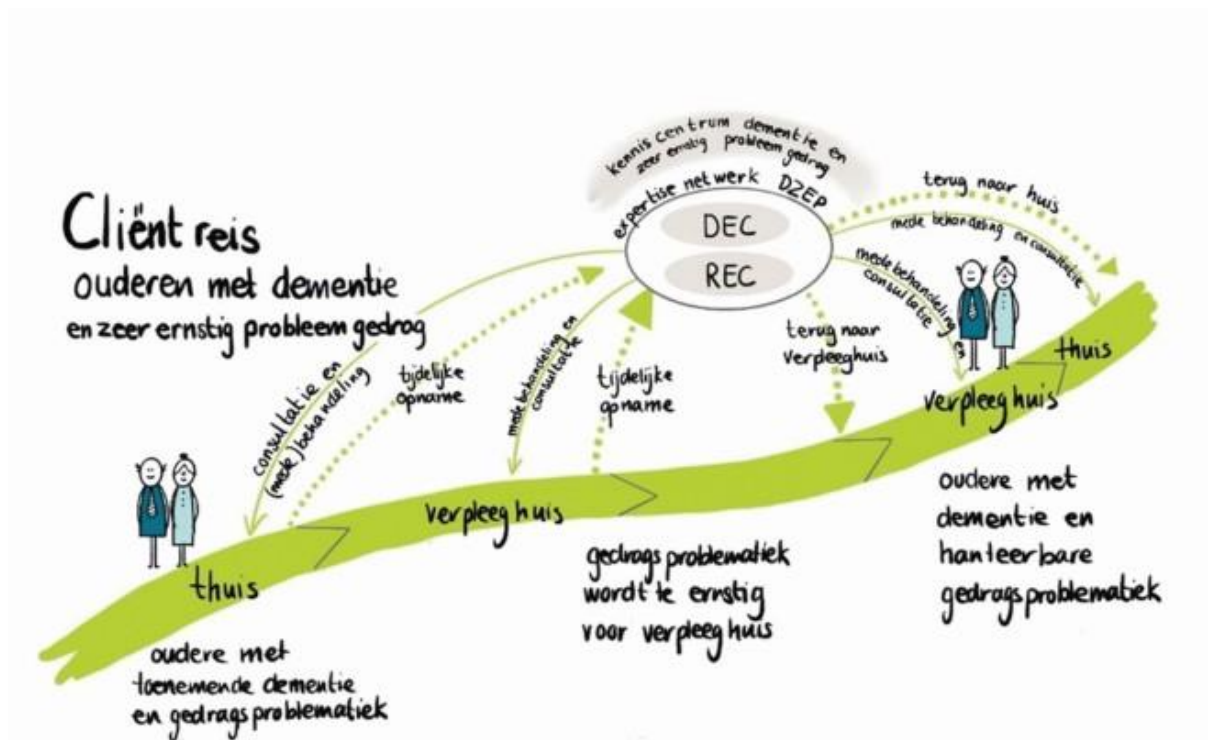 Cliënt reis
ouderen met dementie
en zeer ernstig probleem gedrag
kennis centrum dementie en
zeer ernstig probleem gedrag
expertise netwerk DZEP
DEC
REC
terug naar huis
mede behandeling en consultatie
mede behandeling en
consultatie
terug naar
verpleeghuis
consultatie en
(mede) behandeling
tijdelijke
opname
mede behandeling en
consultatie
tijdelijke
opname
thuis
verpleeg huis
verpleeg huis
thuis
oudere met
toenemende dementie
en gedrags problematiek
gedrags problematiek
wordt te ernstig
voor verpleeg huis
oudere met
dementie en
hanteerbare
gedrags problematiek